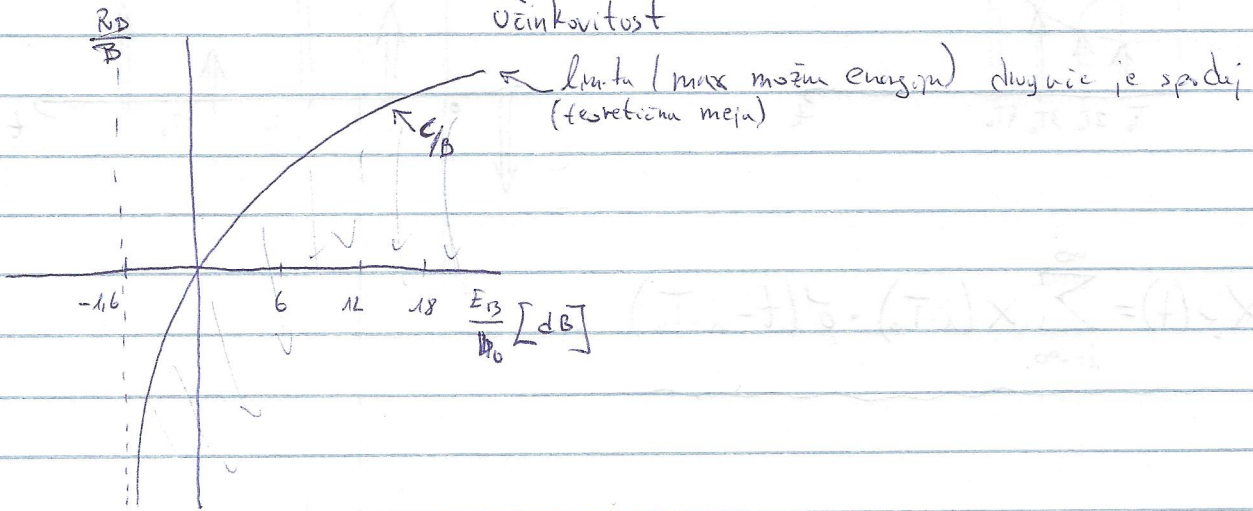 Učinkovitost
R_D/B
limita (max možna energija) drugače je spodaj
(teoretična meja)
C/B
-1,6 6 12 18 E_B/N_0 [dB]